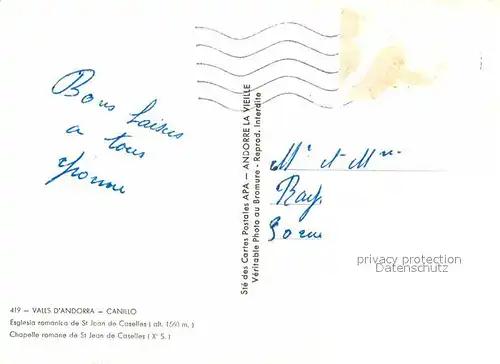 Bons baisers
a tous
Yvonne
Mr et Mme
Ray
STÉ des Cartes Postales APA — ANDORRE LA VIEILLE
Véritable Photo au Bromure - Reprod. Interdite
privacy protection
Zumkeller Cards©
419 — VALLS D'ANDORRA — CANILLO
Esglesia romanica de St Joan de Caselles ( alt. 1560 m. )
Chapelle romane de St Jean de Caselles ( X° S. )